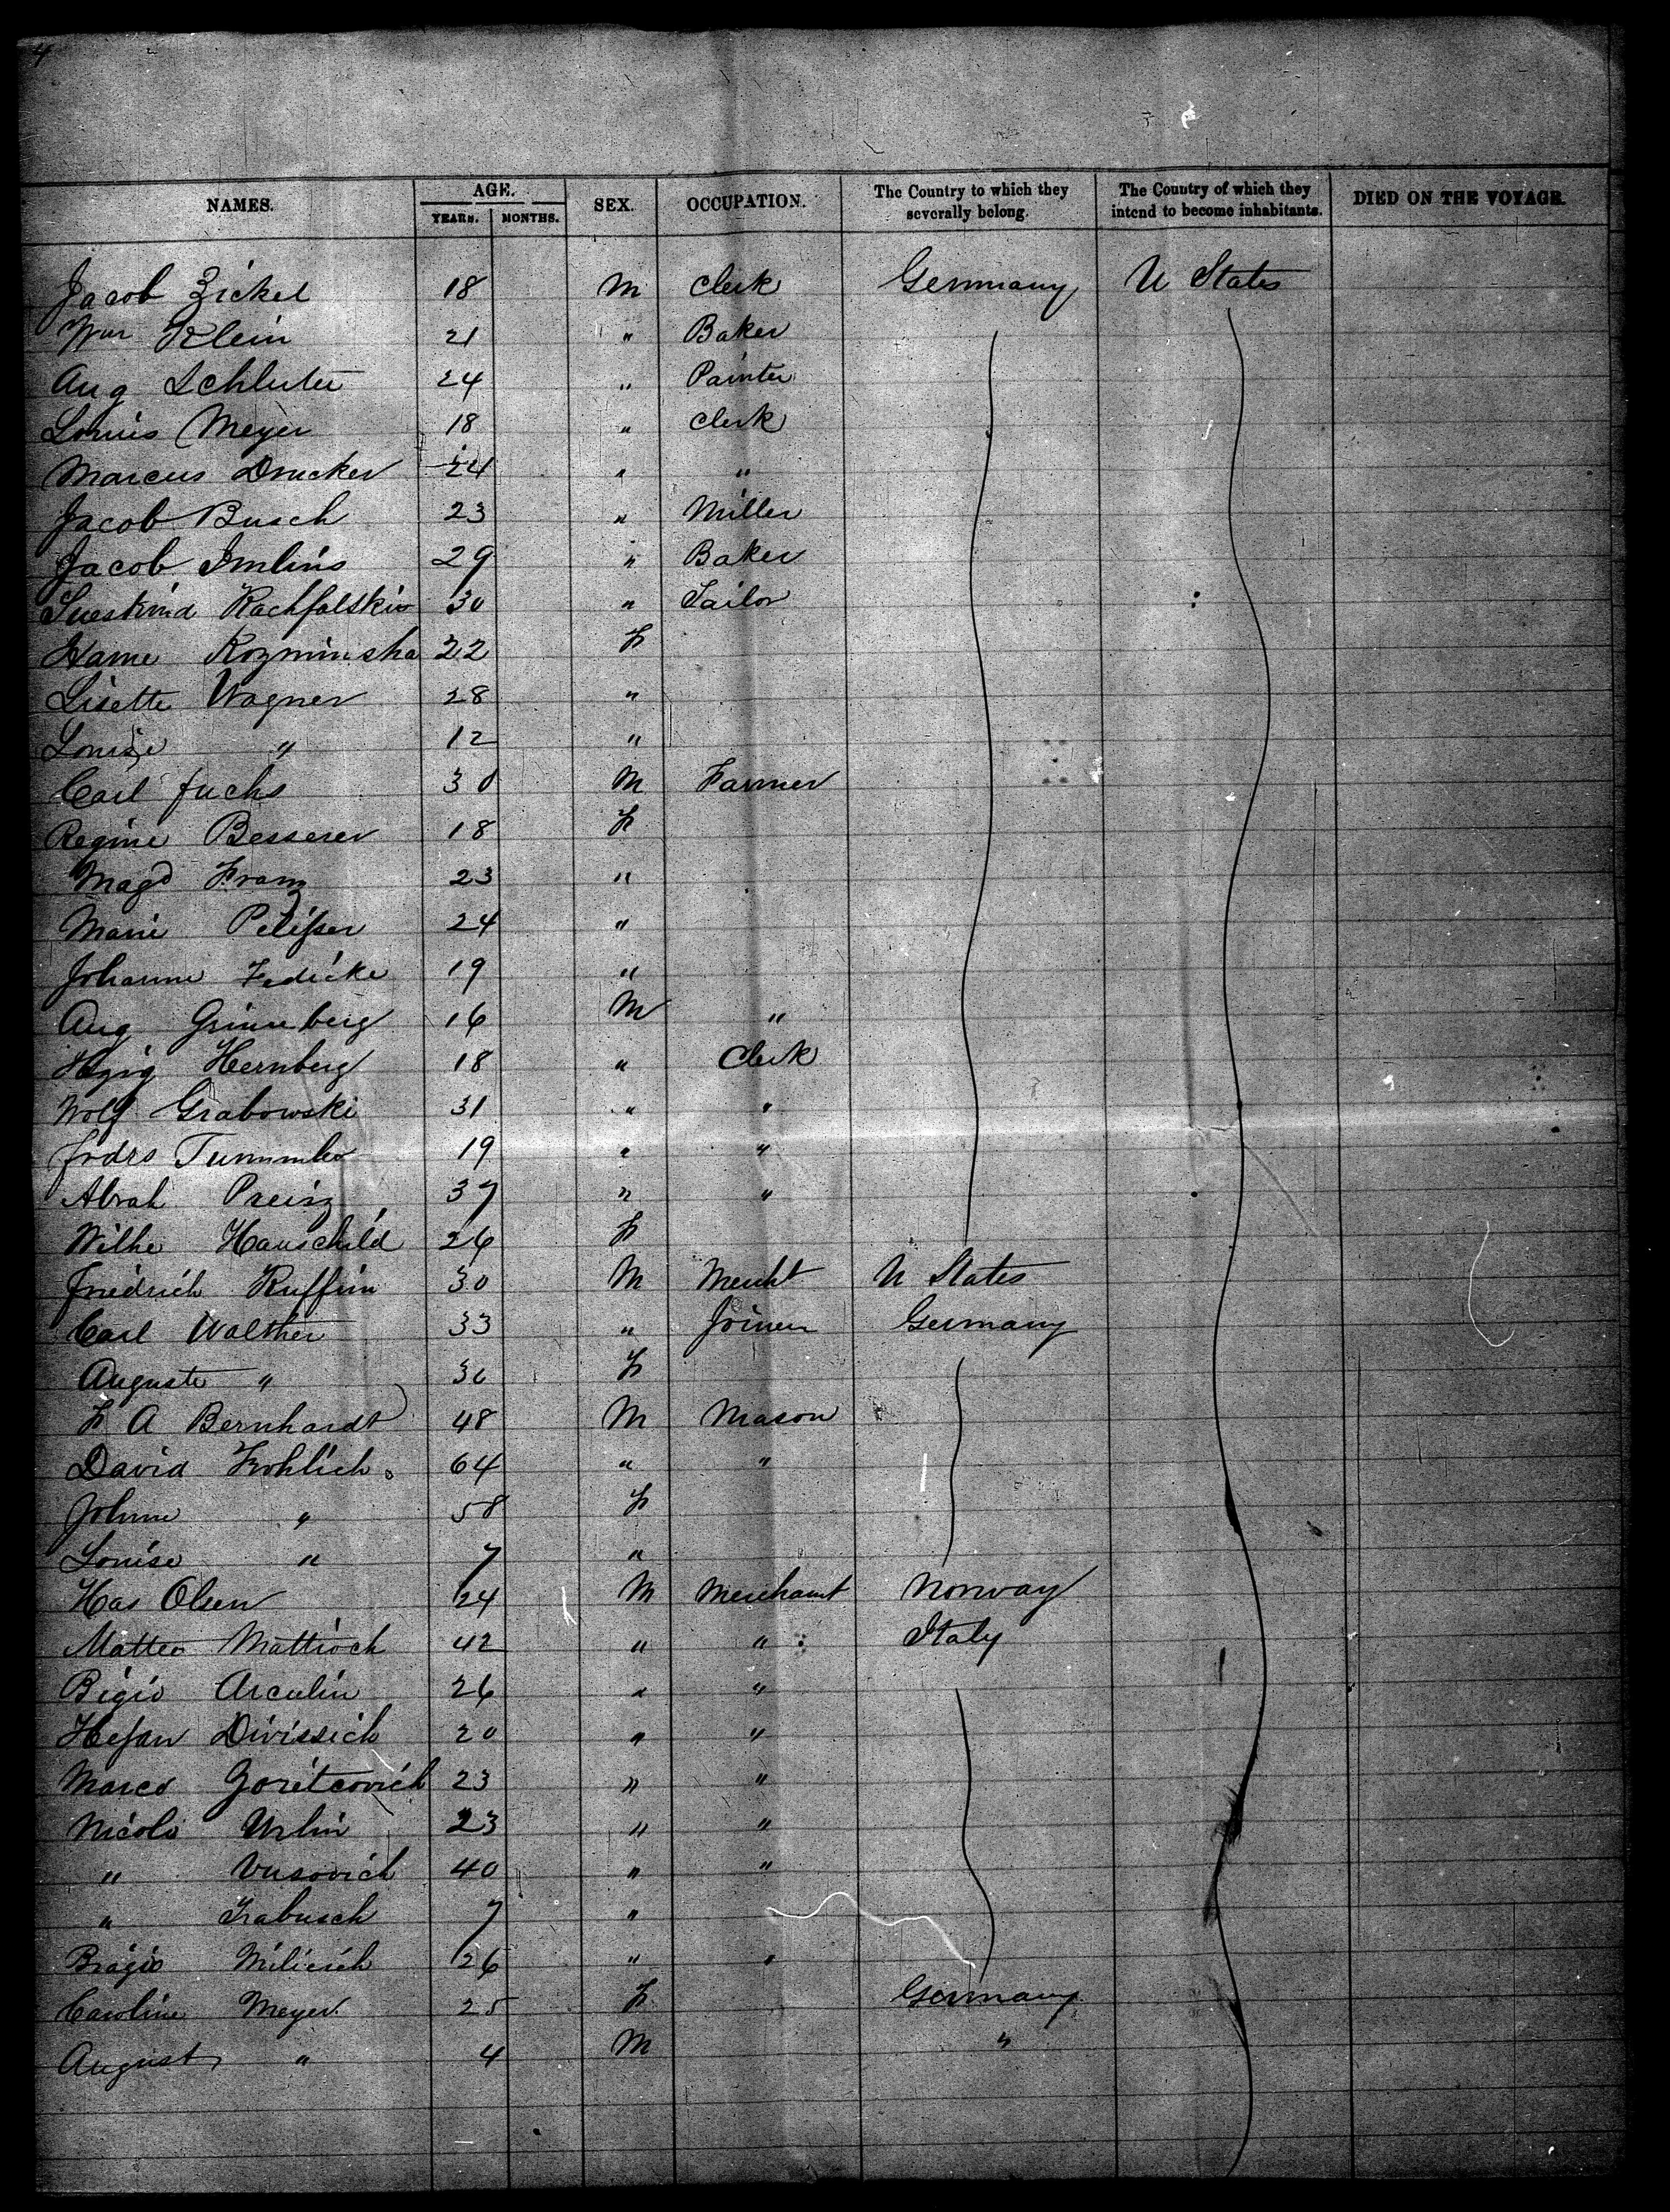 4
NAMES. AGE. YEARS. MONTHS. SEX. OCCUPATION. The Country to which they severally belong. The Country of which they intend to become inhabitants. DIED ON THE VOYAGE.
Jacob Zickel 18 M Clerk Germany U States
Wm Klein 21 " Baker
Aug Schluter 24 " Painter
Louis Meyer 18 " Clerk
Marcus Drucker 24 " "
Jacob Busch 23 " Miller
Jacob Imlins 29 " Baker
Rachfalskis 30 " Tailor
Kozminska 22 F
Lisette Wagner 28 "
Louise " 12 "
Carl Fuchs 30 M Farmer
Regine Besserer 18 F
Magd Franz 23 "
Marie 24 "
Johanne Fedicke 19 "
Aug Grinneberg 16 M "
Hernberg 18 " Clerk
Wolf Grabowski 31 " "
Frdrs Tummler 19 " "
Abrah Preisz 37 " "
Wilhe Hauschild 26 F
Friedrich Ruffin 30 M Mercht U States
Carl Walther 33 " Joiner Germany
Auguste " 30 F
F A Bernhardt 48 M Mason
David Frohlich 64 " "
Johnne " 58 F
Louise " 7 "
Has Olsen 24 M Merchant Norway
Matteo Mattioch 42 " " Italy
Bigio Arculin 26 " "
Divissich 20 " "
Marco Goritcovich 23 " "
Nicolo Urlin 23 " "
" Vusovich 40 " "
" Trabusch 7 "
Biagio Milicich 26 " "
Caroline Meyer 25 F Germany
August " 4 M "